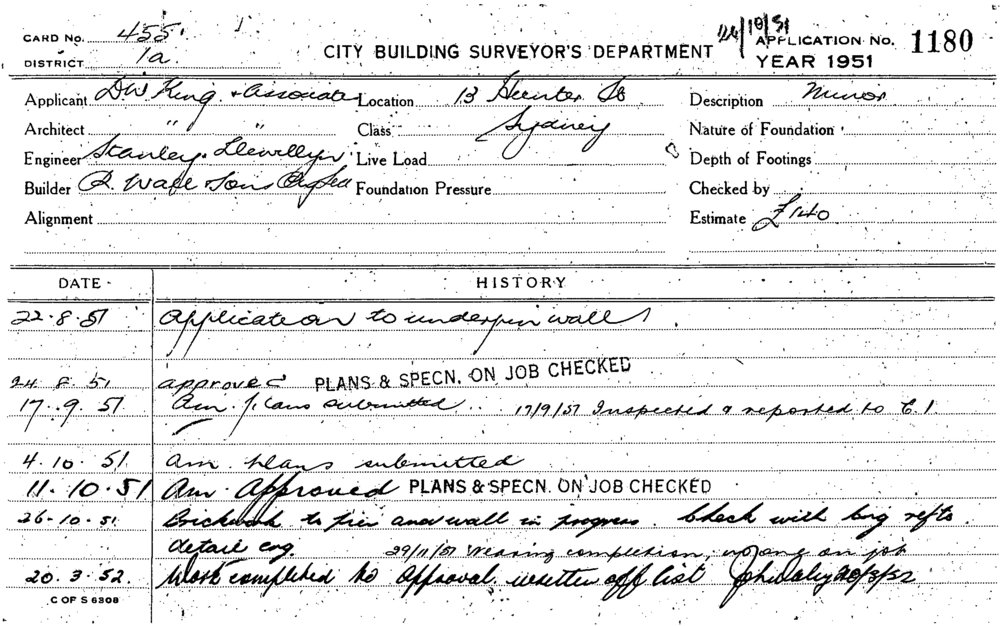 CARD NO. 455
DISTRICT 1a
CITY BUILDING SURVEYOR'S DEPARTMENT
24/10/51
APPLICATION NO. 1180
YEAR 1951
Applicant DW King & Associates
Location 13 Hunter St
Description Minor
Architect " "
Class Sydney
Nature of Foundation
Engineer Stanley Llewellyn
Live Load
Depth of Footings
Builder R. Wall & Sons Pty Ltd
Foundation Pressure
Checked by
Alignment
Estimate £140
DATE HISTORY
22.8.51 Application to underpin wall
24 8. 51 approved PLANS & SPECN. ON JOB CHECKED
17.9.51 Am. plans submitted .. 17/9/51 Inspected & reported to E.1
4.10.51. am. plans submitted
11.10.51 Am. Approved PLANS & SPECN. ON JOB CHECKED
26.10.51 Brickwork to pier and wall in progress. Check with
detail eng. 29/11/51 Nearing completion, on job
20.3.52. Work completed to Approval. written off list 20/3/52
C OF S 6308